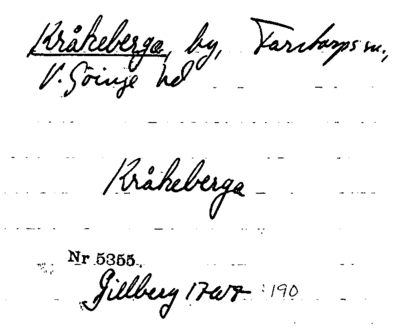 Kråkeberga, by, Farstorps sn.,
V. Göinge hd
Kråkeberga
Nr 5355.
Gillberg :190